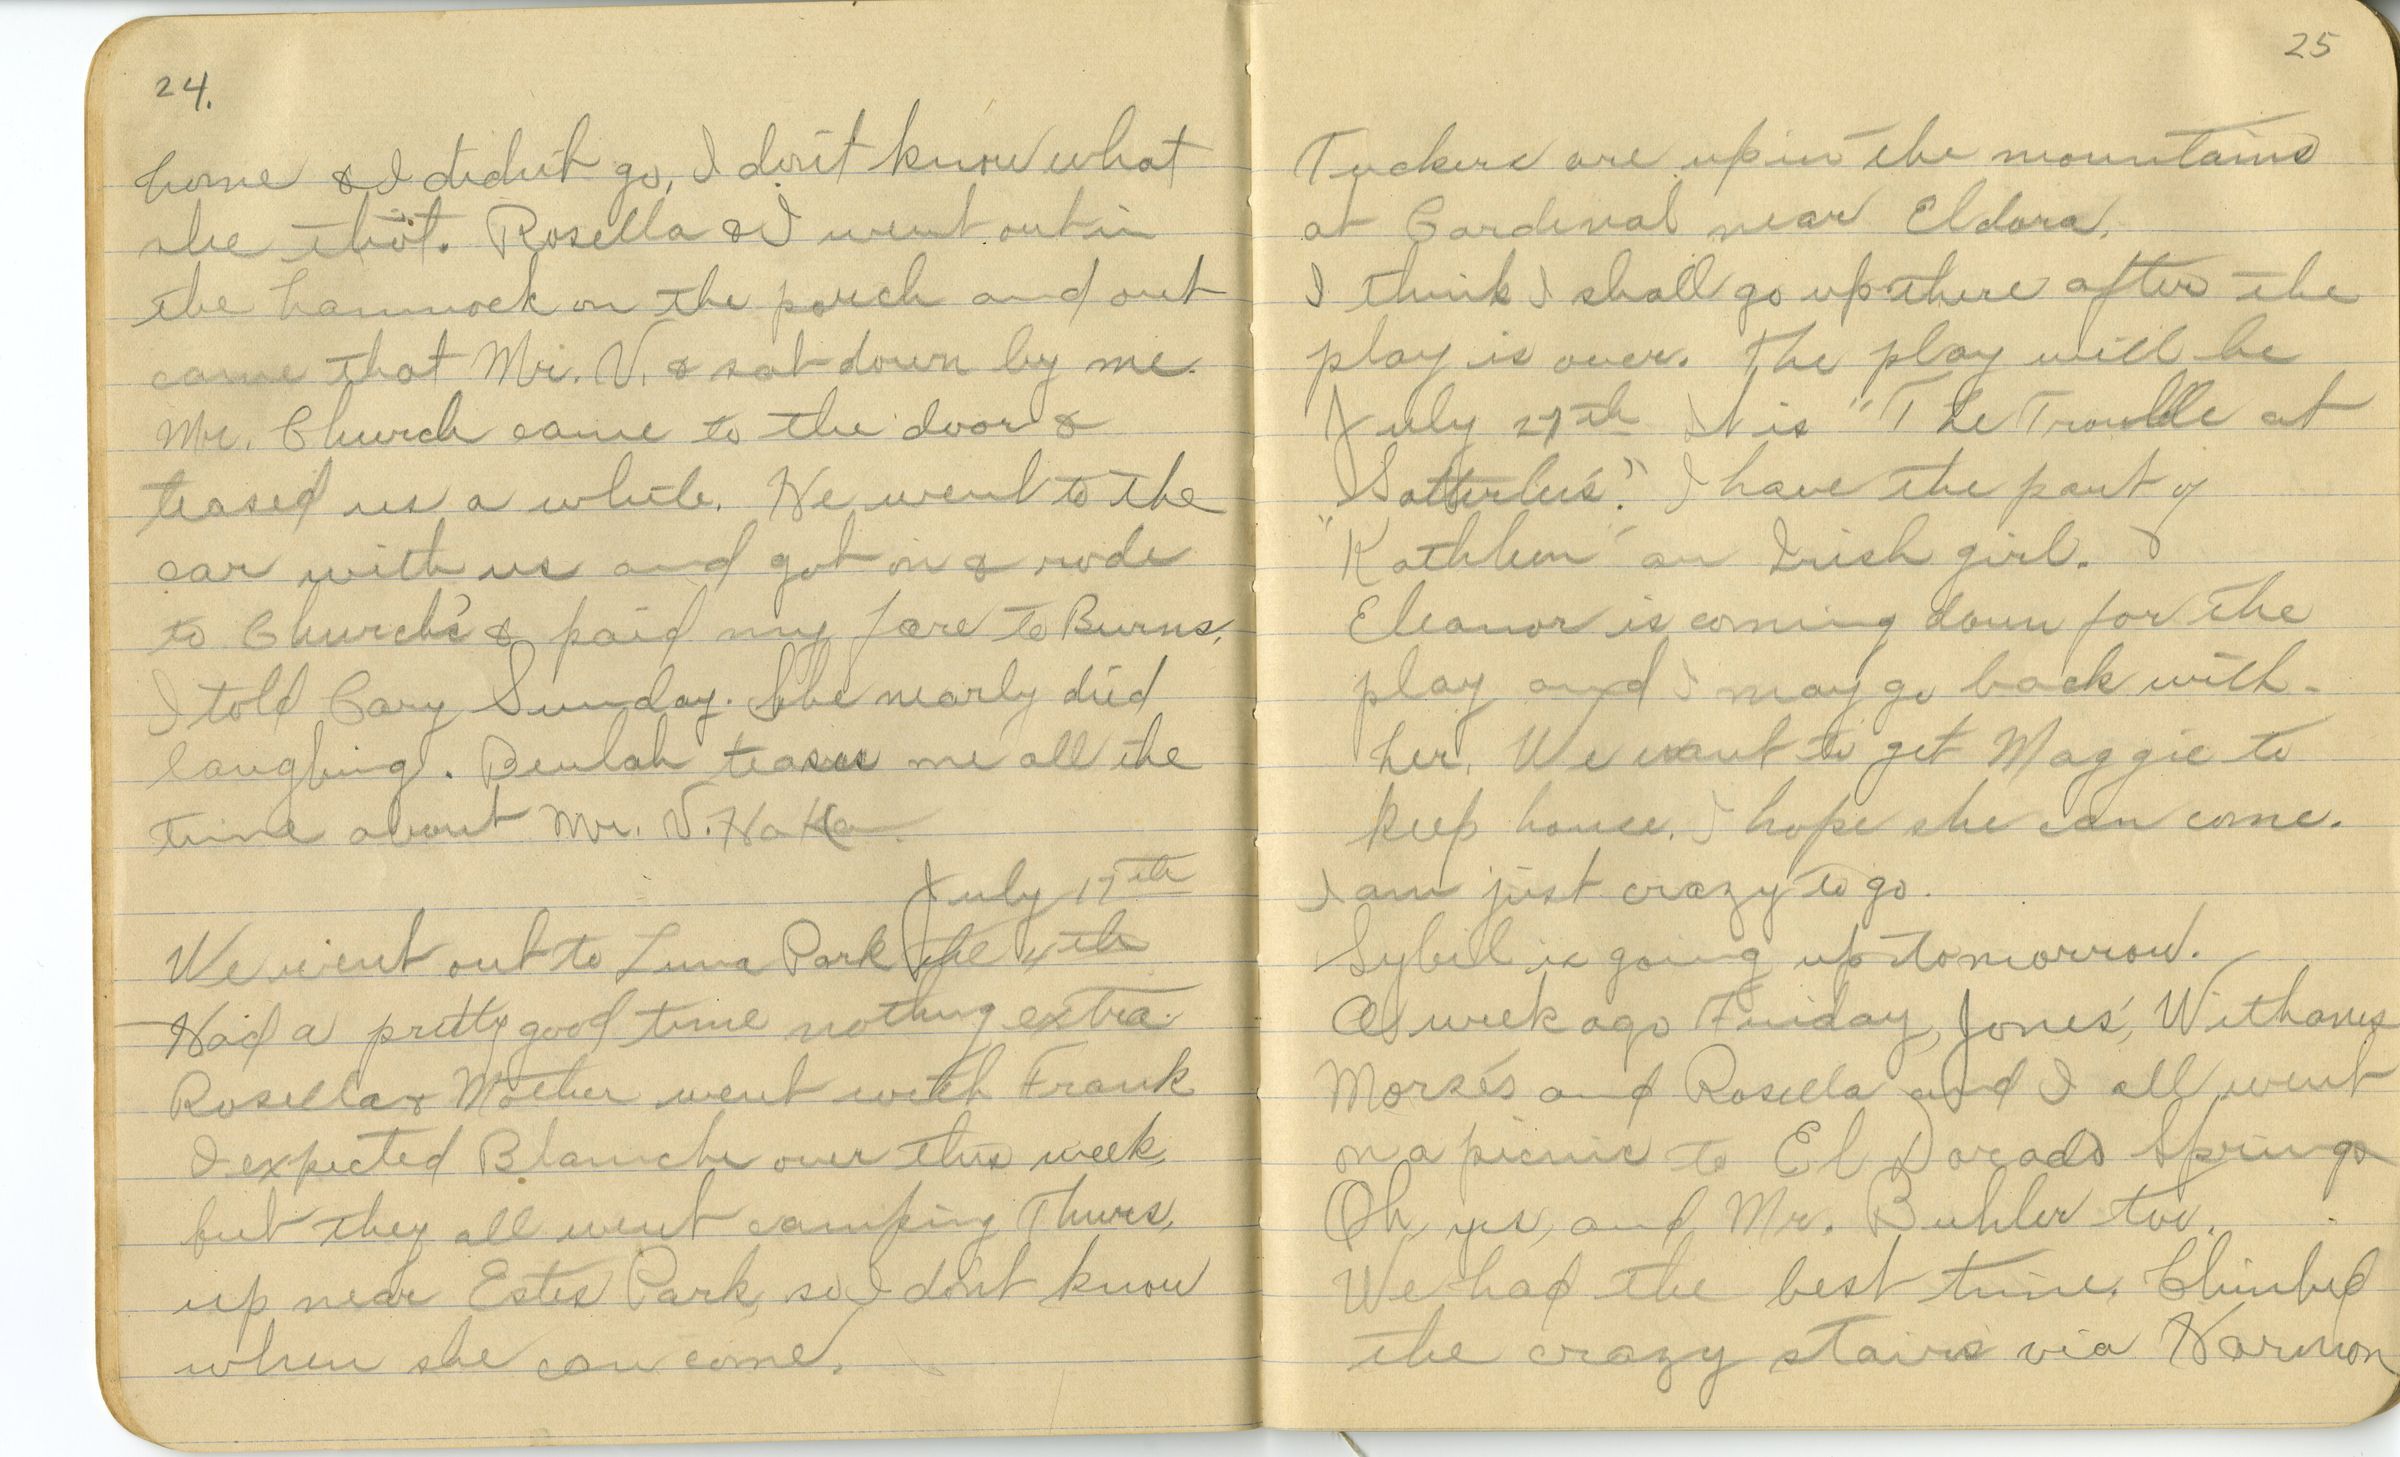 24.
home & I didn't go, I don't know what
she thot. Rosella & I went out in
the hammock on the porch and out
came that Mr. V. & sat down by me.
Mr. Church came to the door &
teased us a while. He went to the
car with us and got on & rode
to Church's & paid my fare to Burns,
I told Cary Sunday. She nearly died
laughing. Beulah teases me all the
time about Mr. V. Ha Ha
July 17th
We went out to Luna Park the 4th
Had a pretty good time nothing extra.
Rosella & Mother went with Frank
I expected Blanche over this week,
but they all went camping Thurs,
up near Estes Park, so I don't know
when she can come.
25
Tuckers are up in the mountains
at Cardinal near Eldora.
I think I shall go up there after the
play is over. The play will be
July 27th It is "The Trouble at
Satterlee's." I have the part of
"Kathleen" an Irish girl.
Eleanor is coming down for the
play and I may go back with
her. We want to get Maggie to
keep house. I hope she can come.
I am just crazy to go.
Sybil is going up tomorrow.
A week ago Friday, Jones', Withams
Morse's and Rosella and I all went
on a picnic to El Dorado Springs
Oh, yes, and Mr. Buhler too.
We had the best time. Climbed
the crazy stairs via Harmon